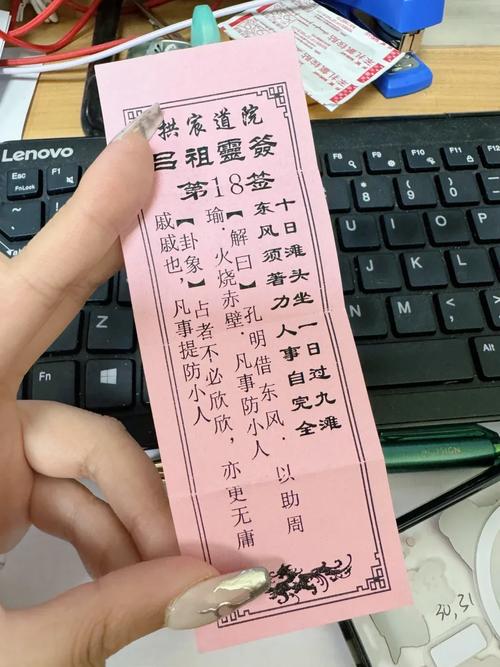 拱宸道院
吕祖靈簽
第18签
十日滩头坐 一日过九滩
东风须著力 人事自完全
【解曰】孔明借东风．以助周
瑜．火烧赤壁．凡事防小人
【卦象】占者不必欣欣，亦更无庸
戚戚也，凡事提防小人
Lenovo
Esc
FnLock
F1
F8
F9
F10
F11
F12
U
I
O
P
J
K
L
M
Alt
Ctrl
30,31